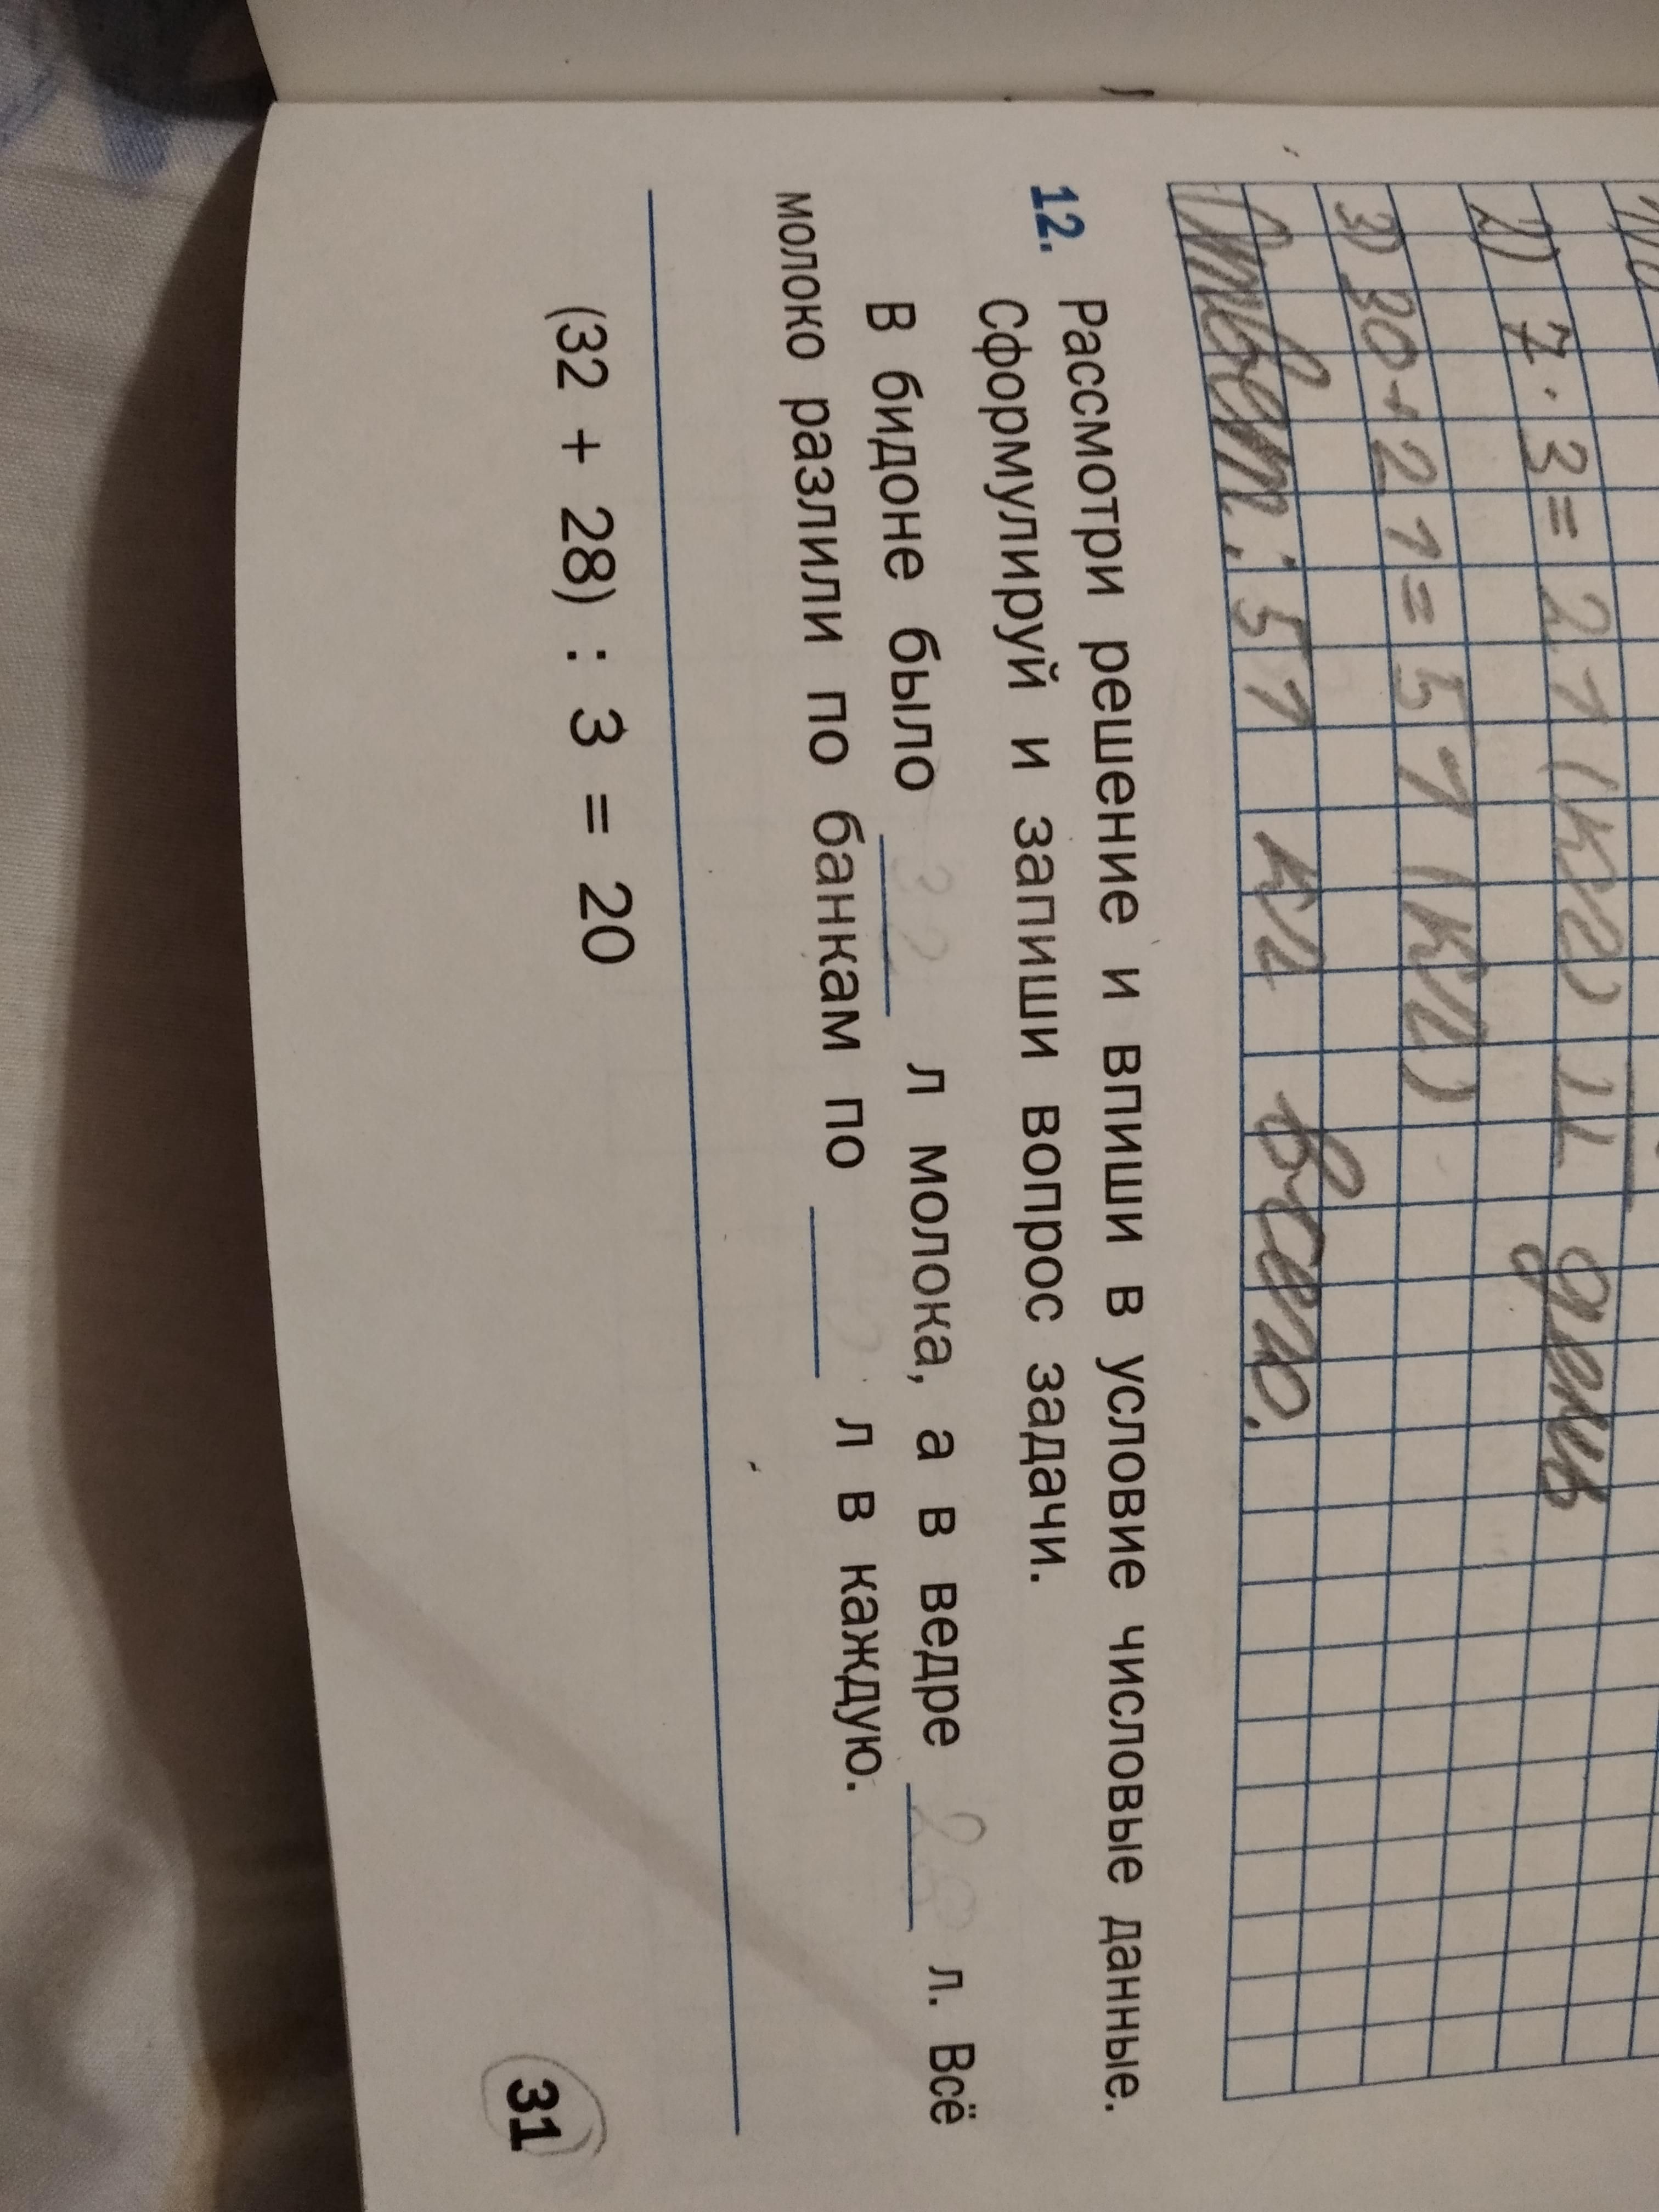 2) 7 · 3 = 21 (кг) II день
3) 30 + 21 = 51 (кг)
Ответ: 51 кг всего.
12. Рассмотри решение и впиши в условие числовые данные.
Сформулируй и запиши вопрос задачи.
В бидоне было 32 л молока, а в ведре 28 л. Всё
молоко разлили по банкам по ___ л в каждую.
(32 + 28) : 3 = 20
31